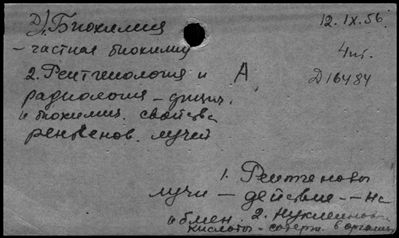 Д) Биохимия
12.IX.56.
– частная биохимия
4 шт.
2. Рентгенология и
А
Д16484
радиология – физич.
и биохимич. свойства
рентгенов. лучей
1. Рентгеновы
лучи – действие – на
обмен. 2. Нуклеиновые
кислоты – содерж. в организме